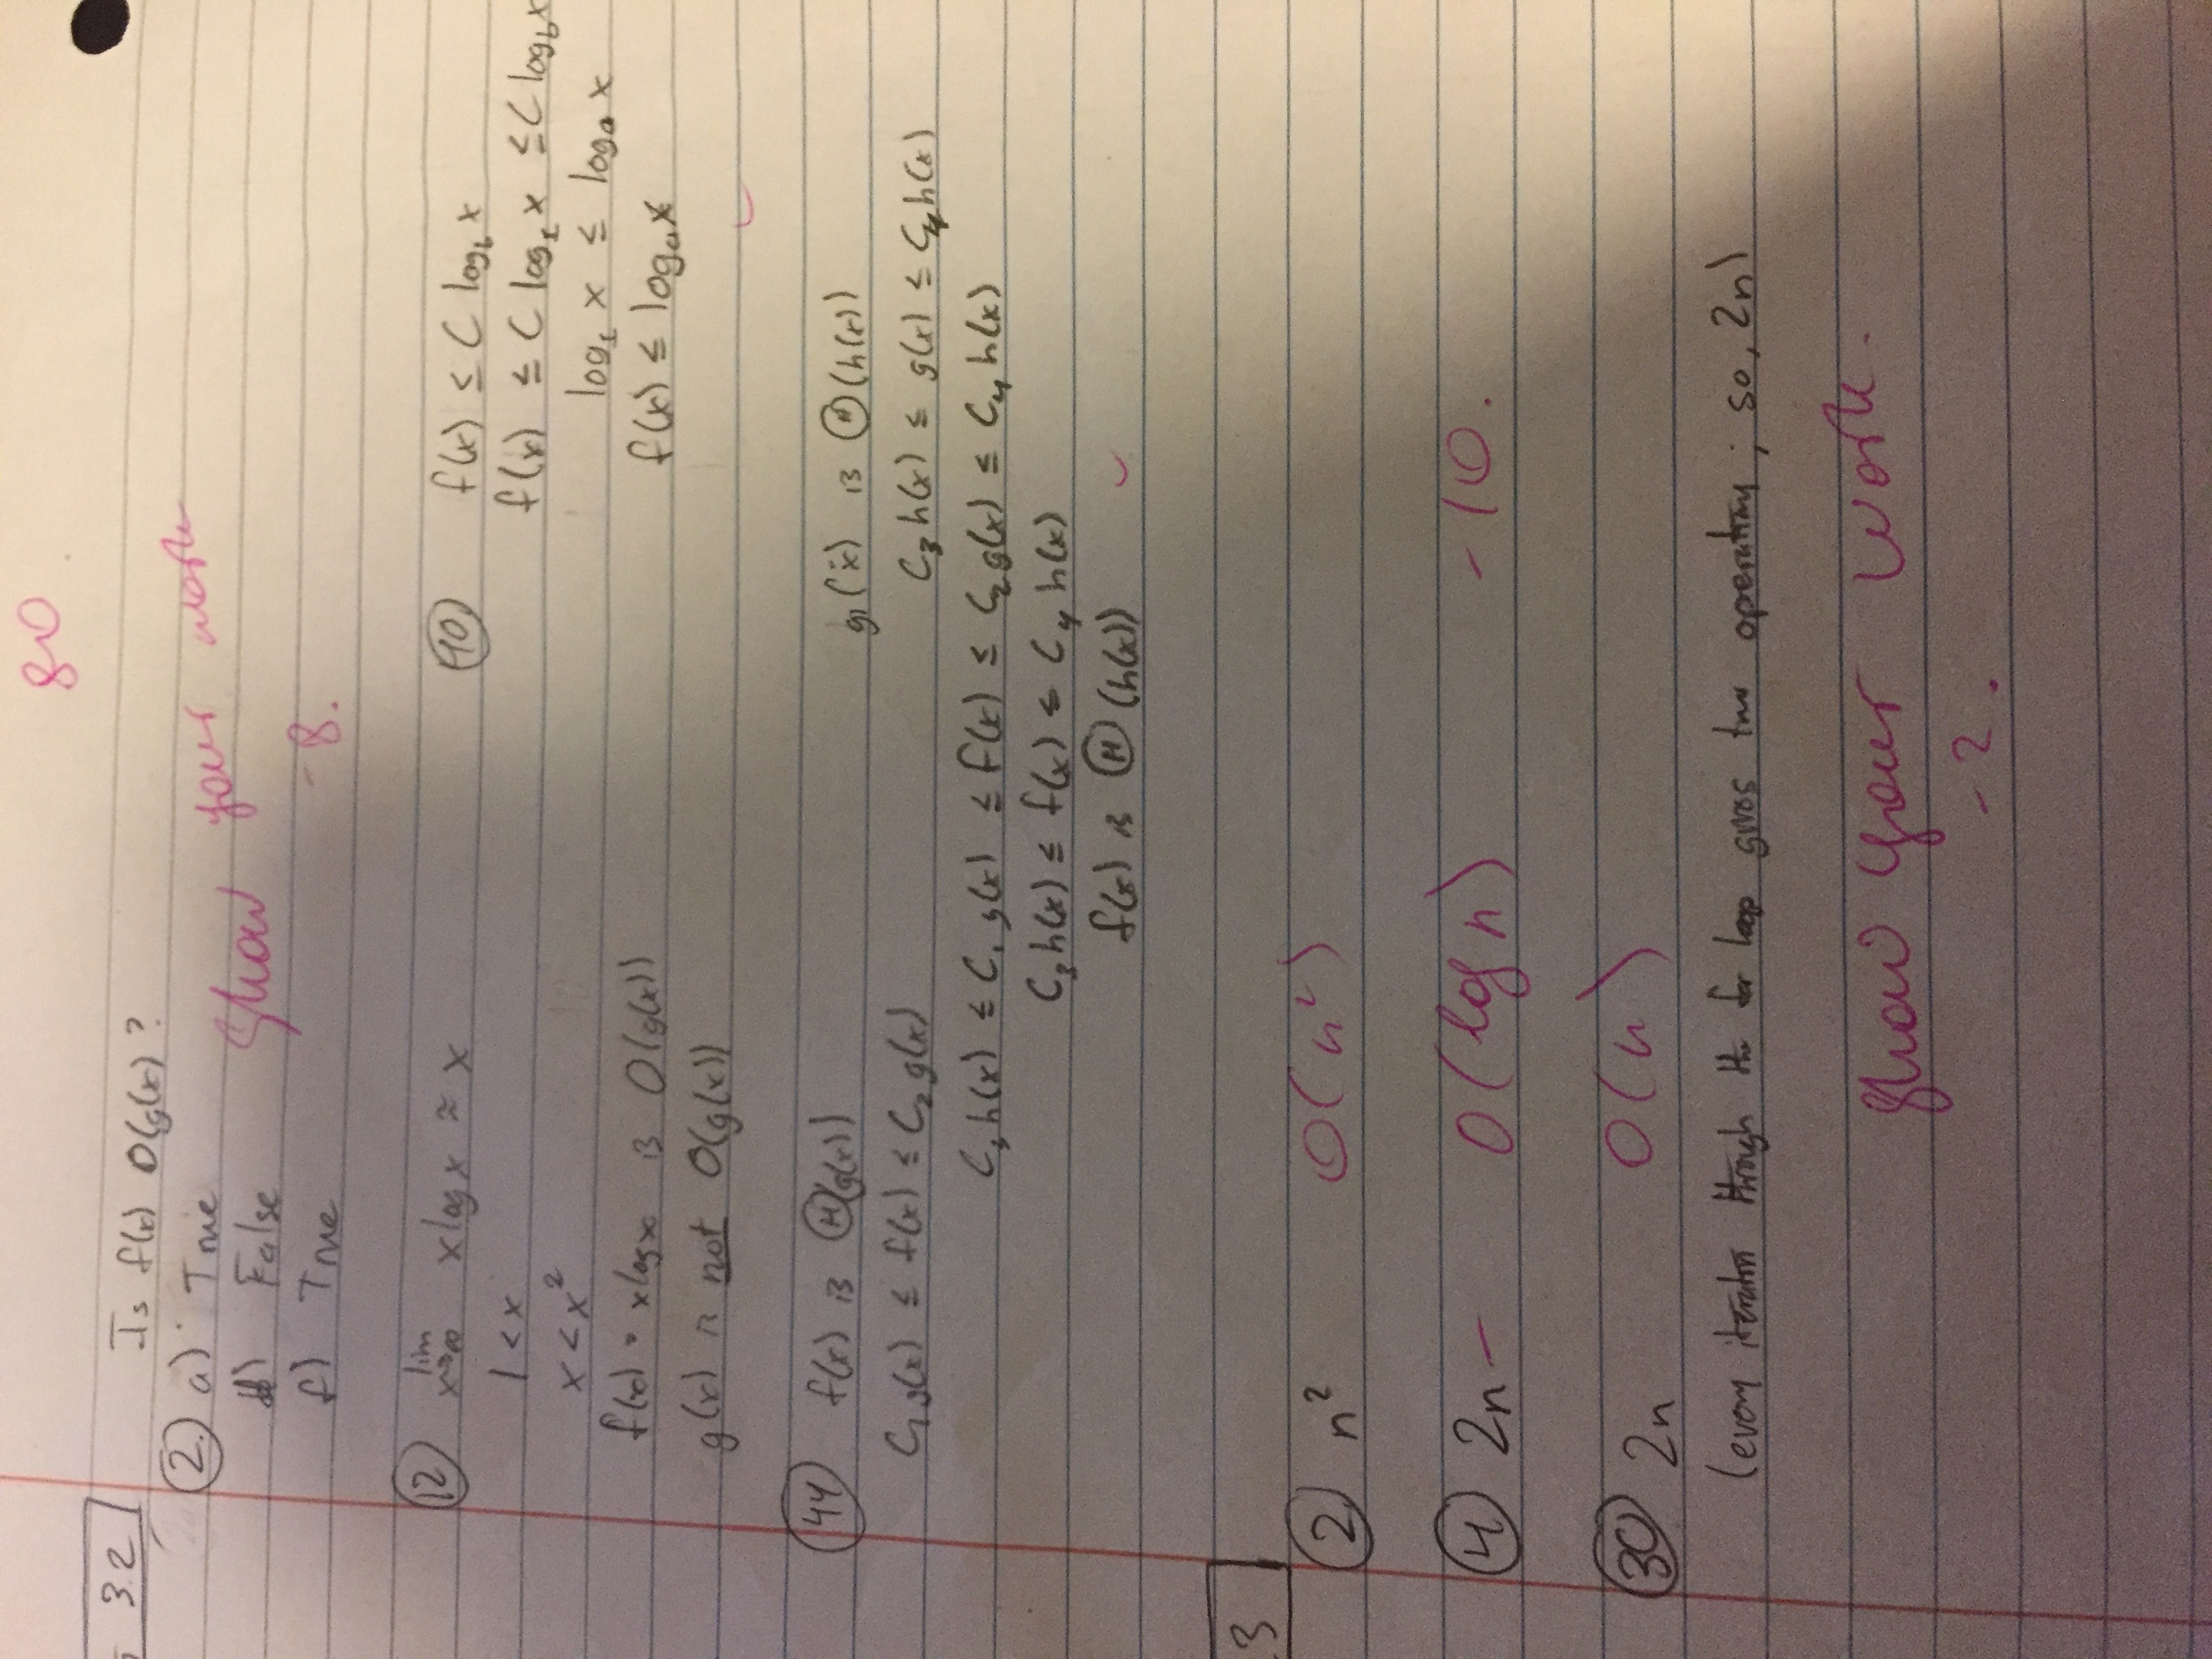 80
3.2
Is f(x) O(g(x)?
2. a) True
Show your work
d) False
f) True
-8.
12 lim x→∞ x log x ≈ x
1 < x
x < x²
f(x) = x log x is O(g(x))
g(x) is not O(g(x))
40 f(x) ≤ C log_b x
f(x) ≤ C log_2 x ≤ C log_b x
log_2 x ≤ log_a x
f(x) ≤ log_a x
44 f(x) is Θ(g(x)) g(x) is Θ(h(x))
C₁g(x) ≤ f(x) ≤ C₂g(x) C₃h(x) ≤ g(x) ≤ C₄h(x)
C₃h(x) ≤ C₁g(x) ≤ f(x) ≤ C₂g(x) ≤ C₄h(x)
C₃h(x) ≤ f(x) ≤ C₄h(x)
f(x) is Θ(h(x))
.3
2. n² O(n²)
4 2n – O(log n) -10.
30 2n O(n)
(every iteration through the for loop gives two operations; so, 2n)
Show your work.
-2.